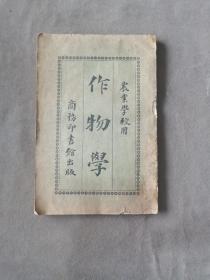 農業學校用
作物學
商務印書館出版